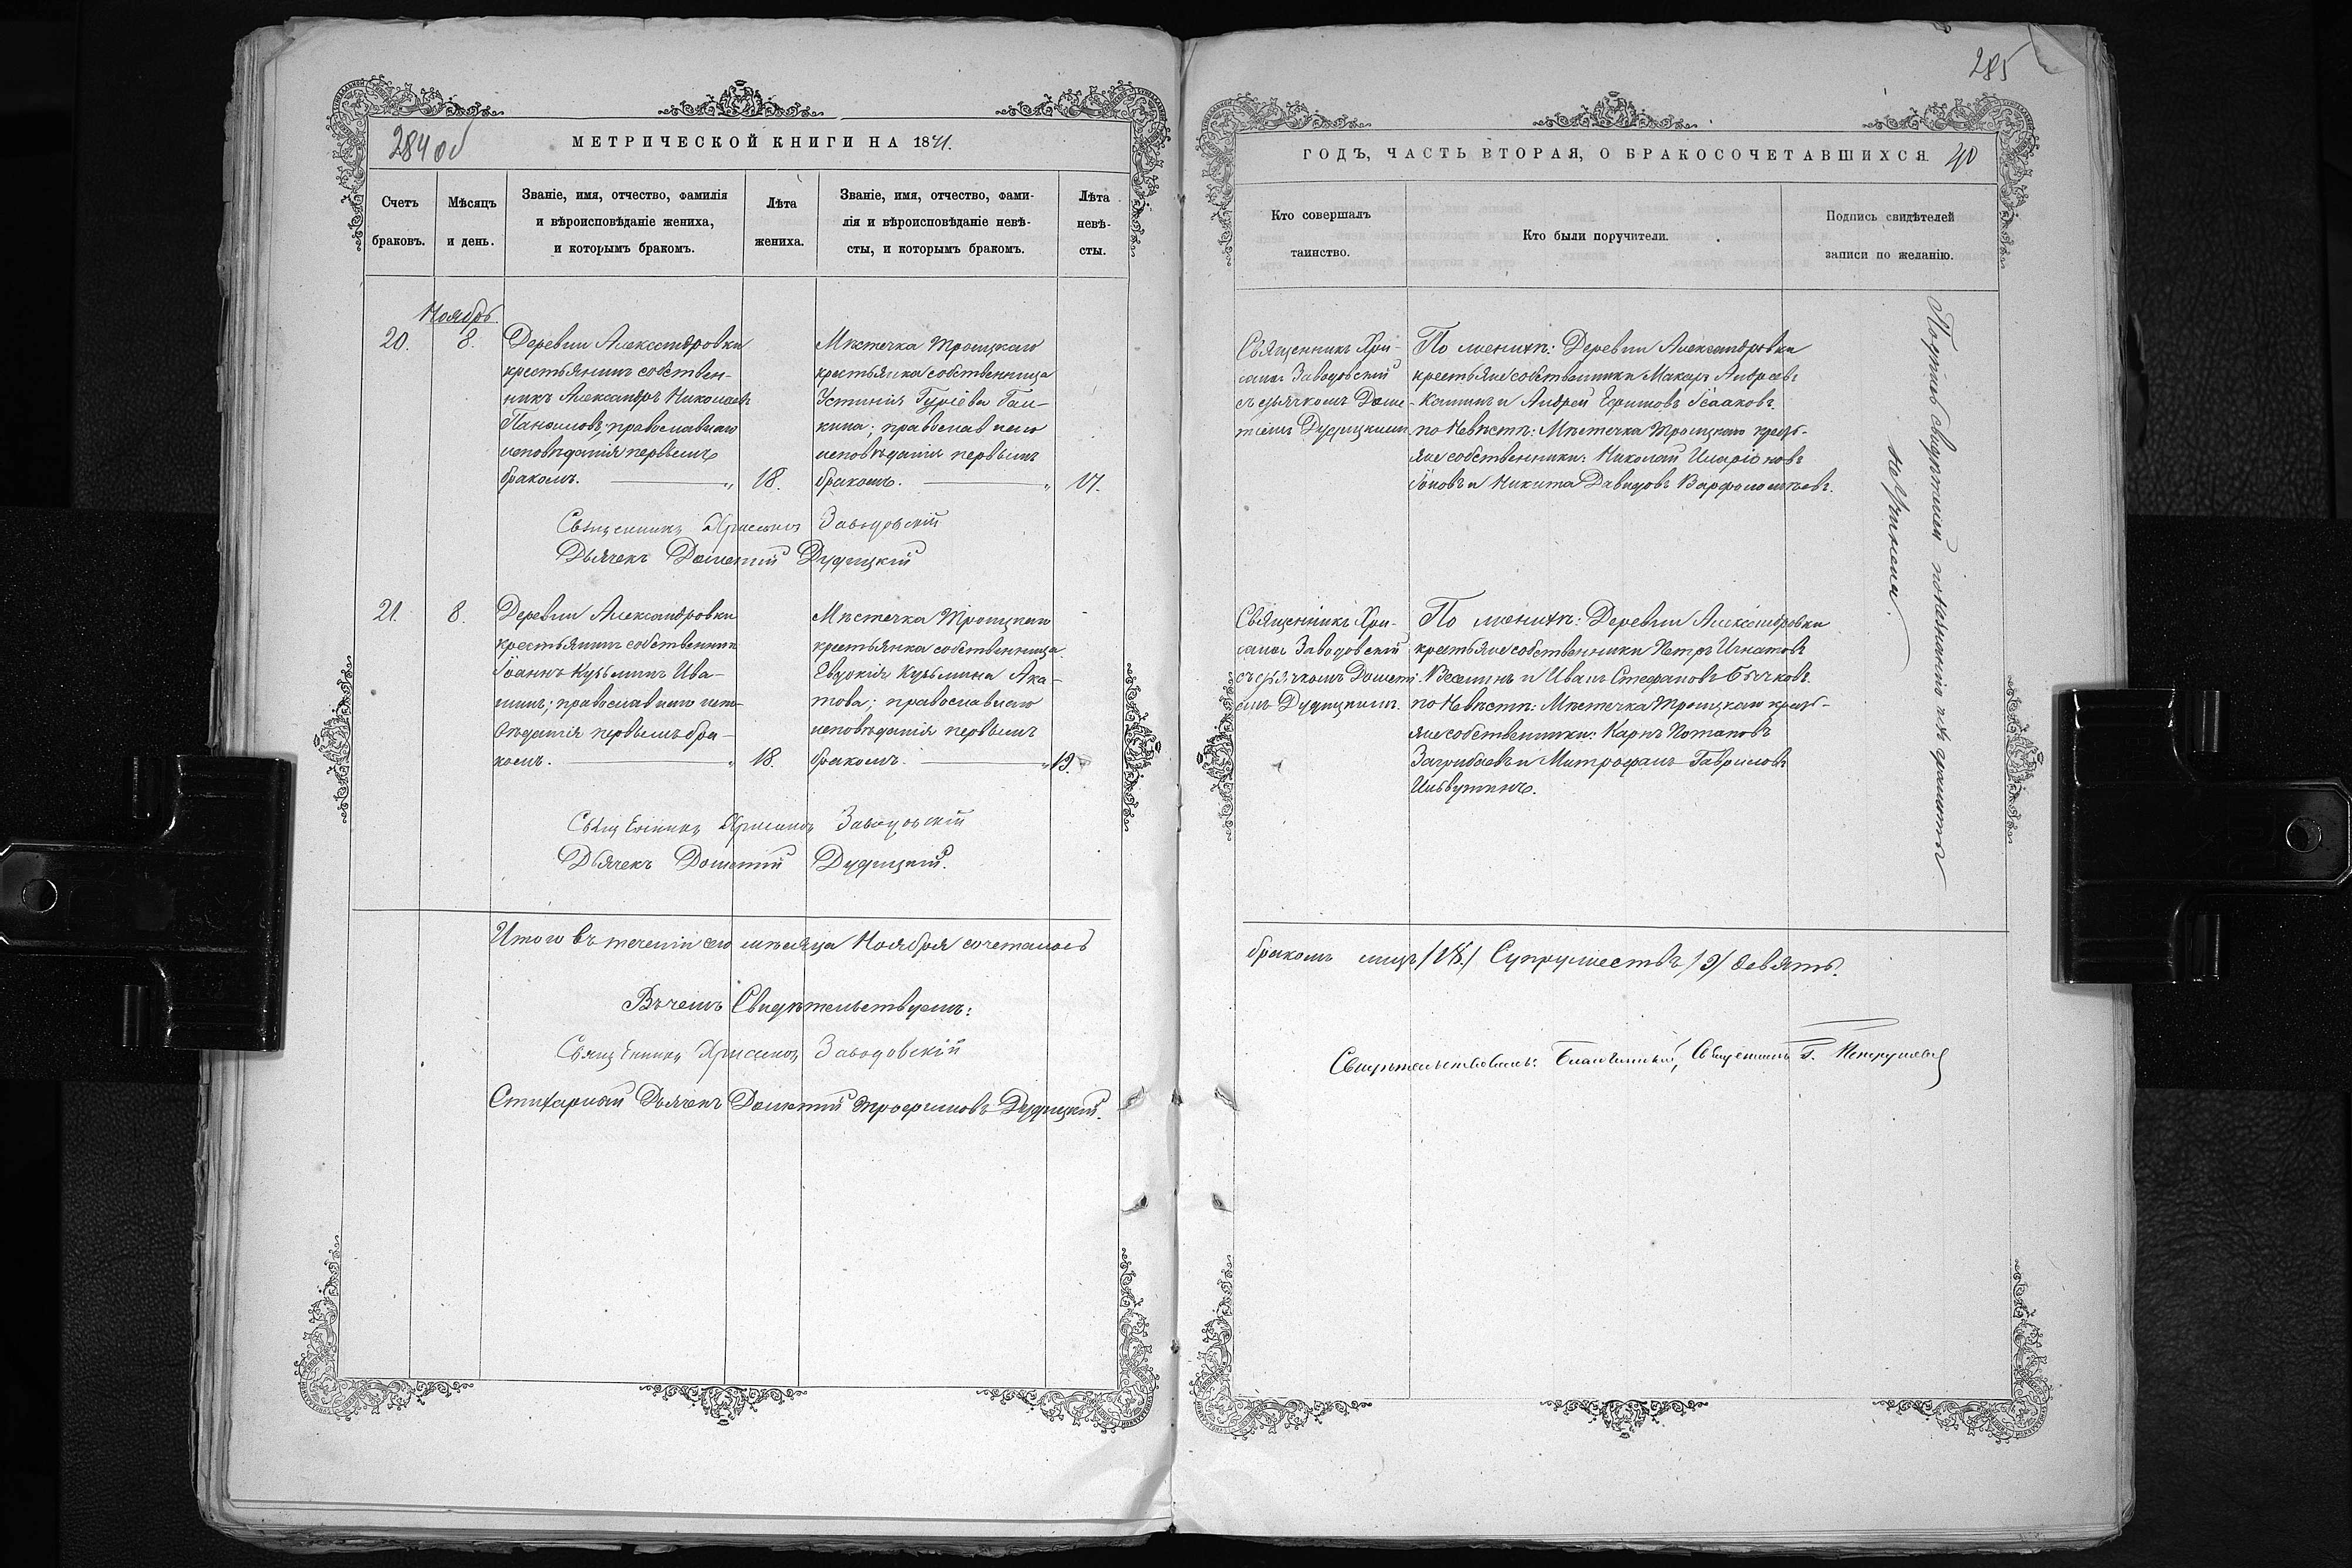 284 об
МЕТРИЧЕСКОЙ КНИГИ НА 1871.
Счетъ браковъ.
Мѣсяцъ и день.
Званіе, имя, отчество, фамилія
и вѣроисповѣданіе жениха,
и которымъ бракомъ.
Лѣта жениха.
Званіе, имя, отчество, фами-
лія и вѣроисповѣданіе невѣ-
сты, и которымъ бракомъ.
Лѣта невѣ-
сты.
Ноябрь
20.
8.
Деревни Александровки
крестьянинъ собствен-
никъ Александръ Николаевъ
православнаго
исповѣданія первымъ
бракомъ. „
18.
Мѣстечка Троицкаго
крестьянка собственница
Устинія Гуріева Гал-
кина; православнаго
исповѣданія первымъ
бракомъ. „
17.
Священникъ Хрисанѳъ Заводовскій
Дьячекъ Дометій Дудицкій
21.
8.
Деревни Александровки
крестьянинъ собственникъ
Іоаннъ Кузьминъ Ива-
шинъ; православнаго испо-
вѣданія первымъ бра-
комъ. „
18.
Мѣстечка Троицкаго
крестьянка собственница
Евдокія Кузьмина Ака-
това; православнаго
исповѣданія первымъ
бракомъ. „
19.
Священникъ Хрисанѳъ Заводовскій
Дьячекъ Дометій Дудицкій.
Итого въ теченіи сего мѣсяца Ноября сочеталось
Въ чемъ Свидѣтельствуемъ:
Священникъ Хрисанѳъ Заводовскій
Стихарный Дьячекъ Дометій Трофимовъ Дудицкій.
285
ГОДЪ, ЧАСТЬ ВТОРАЯ, О БРАКОСОЧЕТАВШИХСЯ.
40
Кто совершалъ
таинство.
Кто были поручители.
Подпись свидѣтелей
записи по желанію.
Священникъ Хри-
санѳъ Заводовскій
съ дьячкомъ Доме-
тіемъ Дудицкимъ
По женихѣ: Деревни Александровки
крестьяне собственники Макаръ Андреевъ
и Андрей Ефимовъ Ісааковъ.
по Невѣстѣ: Мѣстечка Троицкаго кресть-
яне собственники: Николай Иларіоновъ
Іоновъ и Никита Давидовъ Варфоломѣевъ.
Священникъ Хри-
санѳъ Заводовскій
съ дьячкомъ Домети-
емъ Дудицкимъ.
По женихѣ: Деревни Александровки
крестьяне собственники Петръ Игнатовъ
Веселинъ и Иванъ Стефановъ Бычковъ.
по Невѣстѣ: Мѣстечка Троицкаго кресть-
яне собственники: Карпъ Потаповъ
Загрибаевъ и Митрофанъ Гавриловъ
Подписи свидѣтелей по незнанію ихъ грамоты
не учинена.
бракомъ лицъ /18./ Супружествъ /9/ девять.
Свидѣтельствовалъ: Благочинный, Священникъ